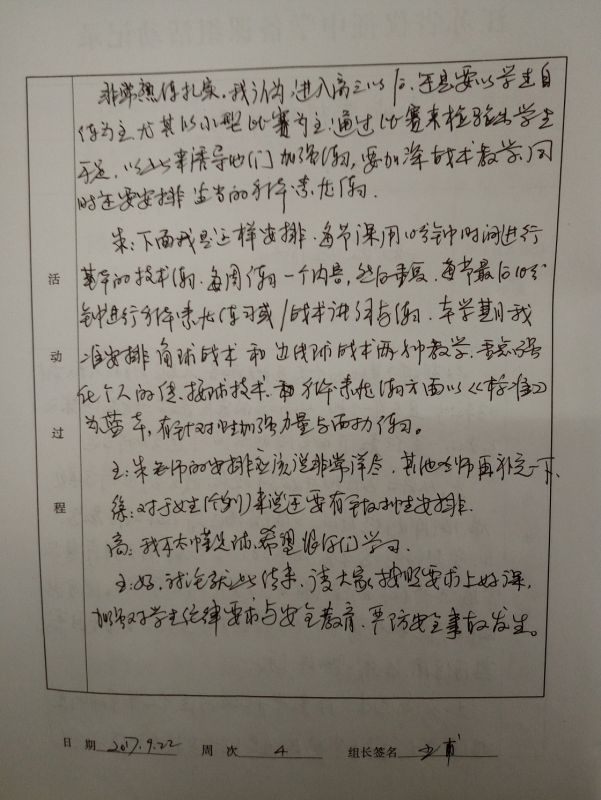 非常熟练扎实。我认为进入高三以后,还是要以学生自
练为主尤其以小型比赛为主通过比赛来检验出学生
不足,以此来诱导他们加强练习,要加深战术教学,同
时还要安排适当的身体素质练习.
朱:下面我是这样安排.每节课用10分钟时间进行
基本的技术练习.每周练习一个内容,然后重复.每节最后10分
钟进行身体素质练习或战术讲解与练习.本学期我
准备安排角球战术和边线球战术两种教学.
化个人的传.接球技术.和身体素质练习方面以《标准》
为蓝本,有针对性加强力量与耐力练习。
王:朱老师的安排应该说非常详尽,其他老师再补充一下.
徐:对于女生来说还要有针对性安排.
高:我不太懂足球,希望跟你们学习.
王:好,讨论就此结束,请大家按照要求上好课,
加强对学生纪律要求与安全教育,严防安全事故发生。
活
动
过
程
日 期 2017.9.22 周 次 4 组长签名